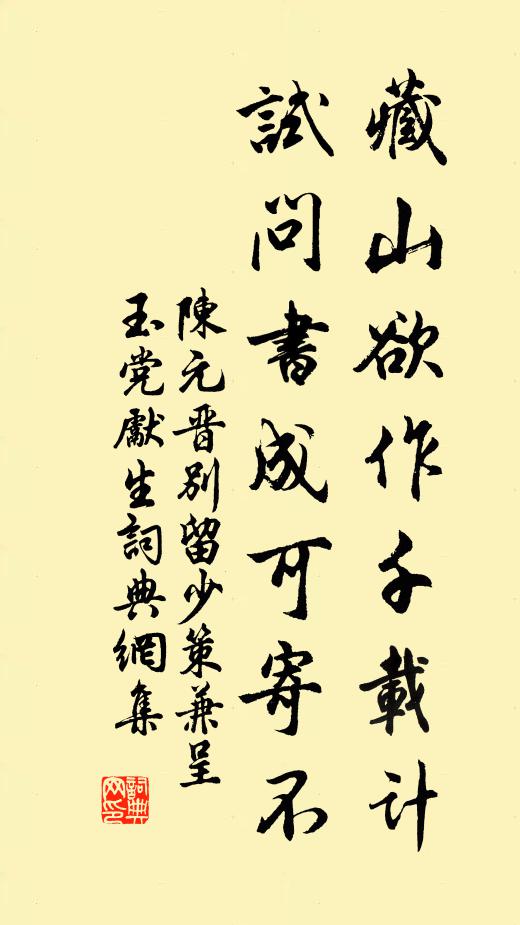 藏山欲作千載計
試問書成可寄不
陳元晋別留少策兼呈
玉党獻生詞典網集
詞典网印